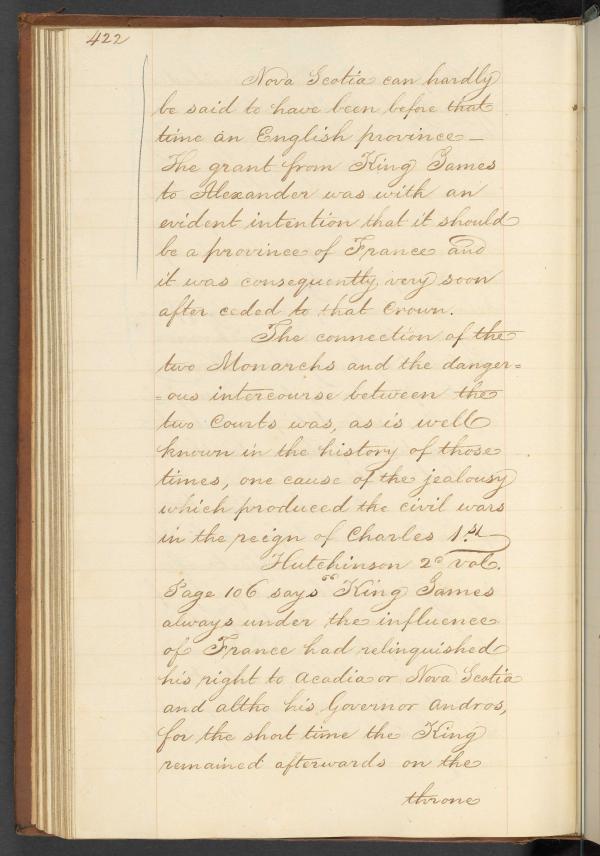 422
Nova Scotia can hardly
be said to have been before that
time an English province –
The grant from King James
to Alexander was with an
evident intention that it should
be a province of France and
it was consequently very soon
after ceded to that Crown.
The connection of the
two Monarchs and the danger=
=ous intercourse between the
two Courts was, as is well
known in the history of those
times, one cause of the jealousy
which produced the civil wars
in the reign of Charles 1.st
Hutchinson 2d vol.
Page 106 says "King James
always under the influence
of France had relinquished
his right to Acadia or Nova Scotia
and altho his Governor Andros,
for the short time the King
remained afterwards on the
throne